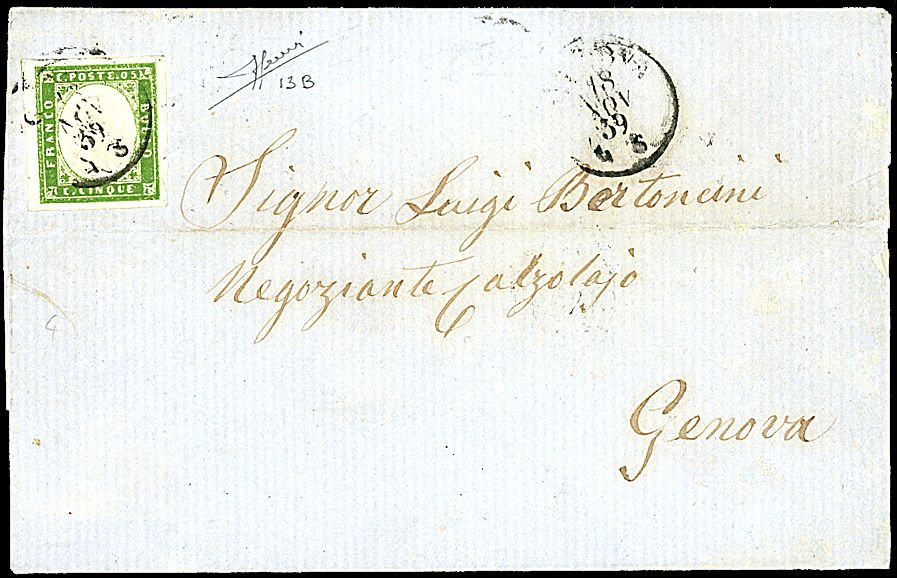 C. POSTE. 05
FRANCO
BOLLO
C. CINQUE
13B
59
Signor Luigi Bertoncini
Negoziante Calzolajo
Genova
4